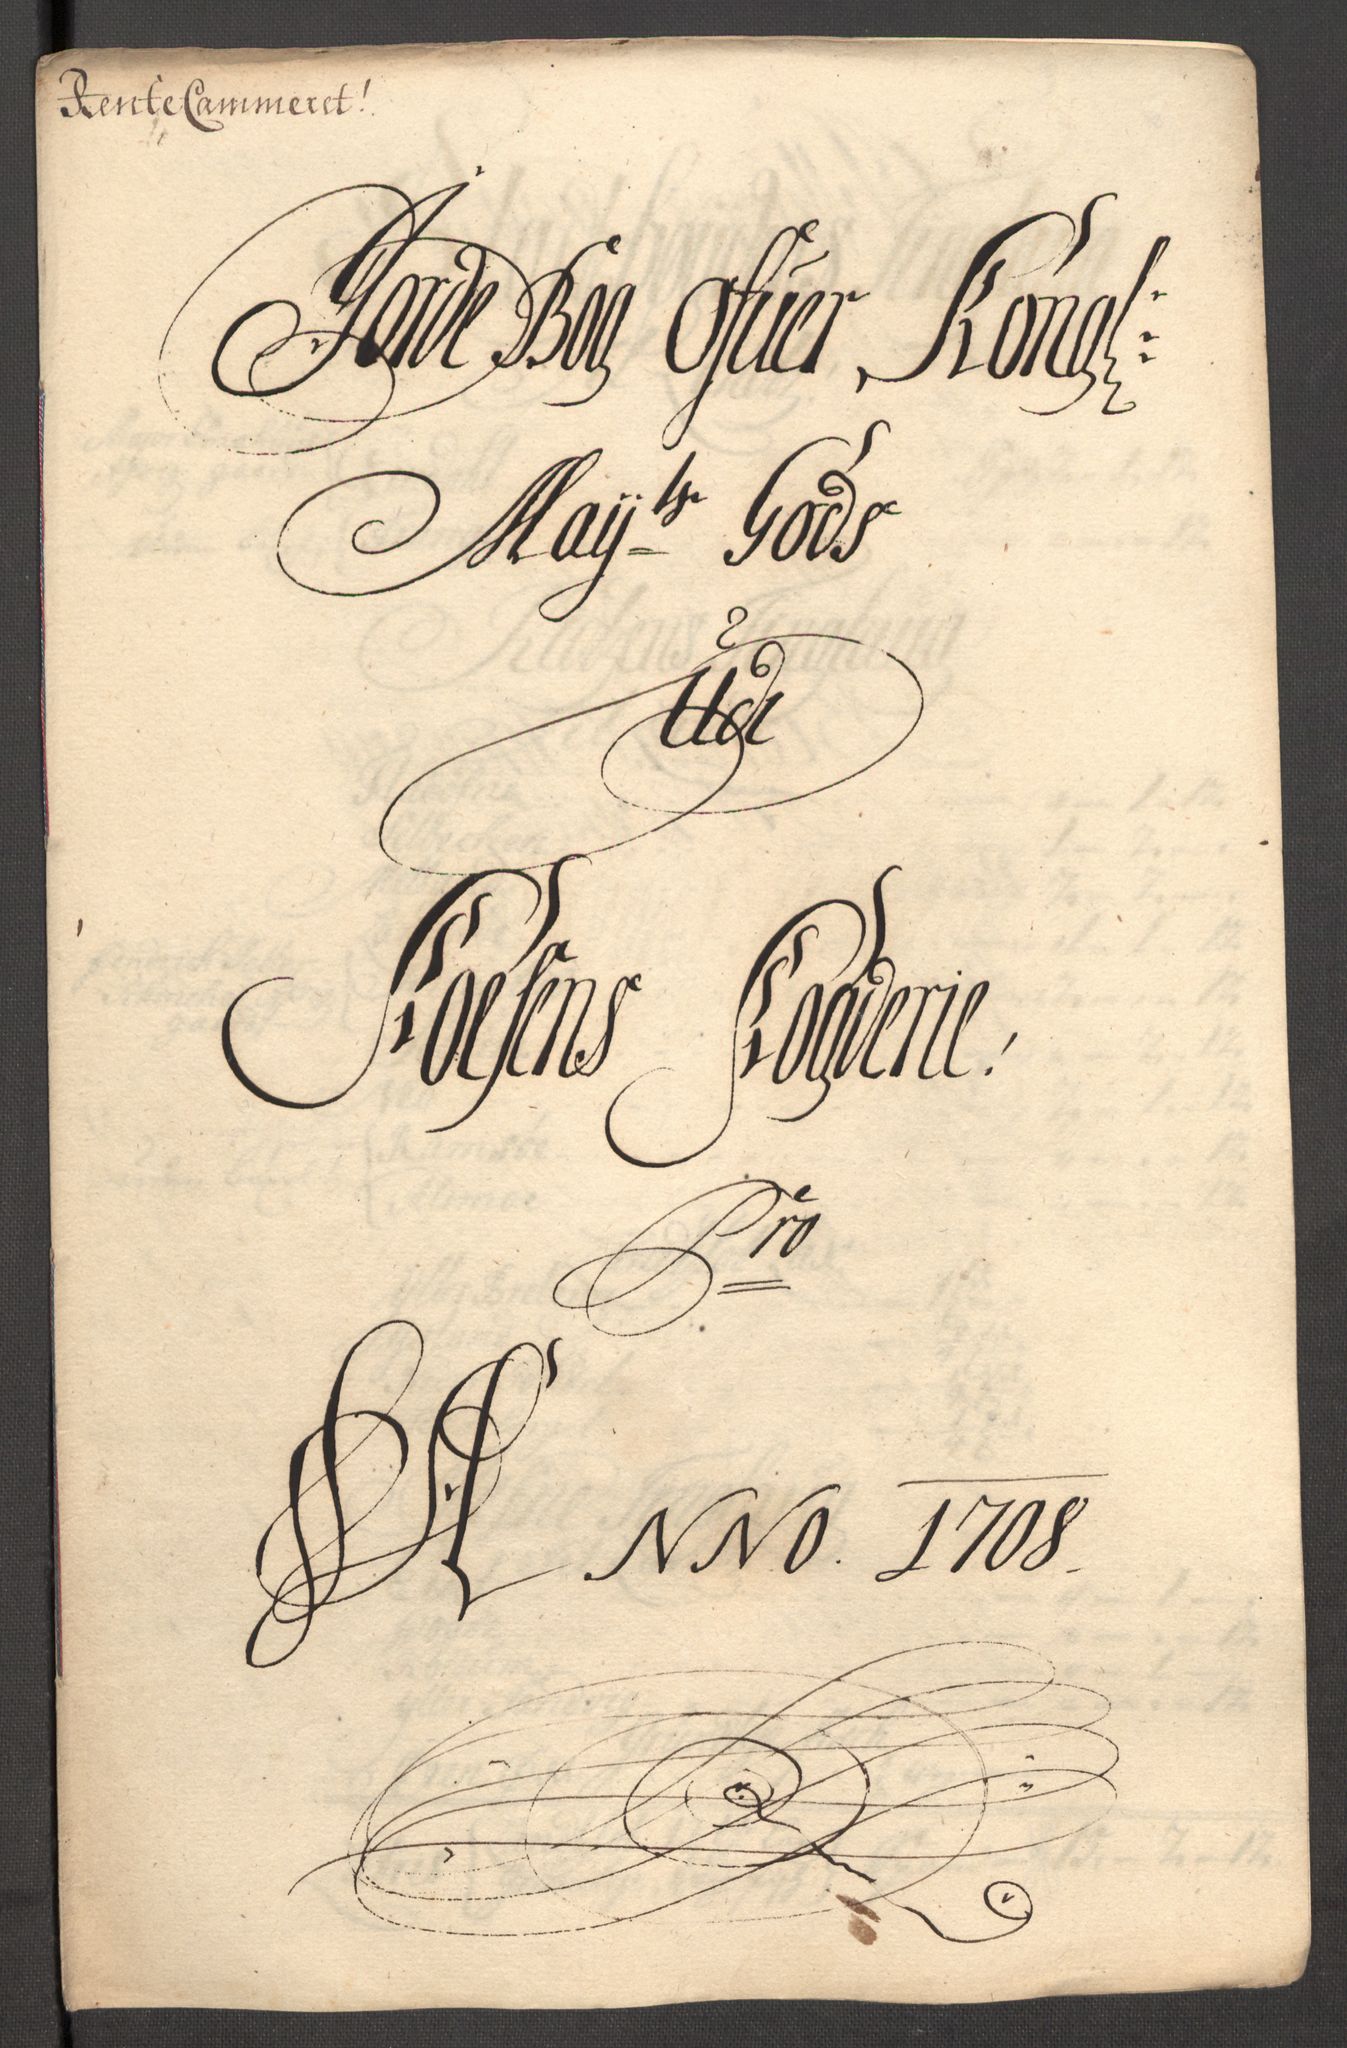 RenteCammeret!
Jorde Bog ofuer Kongl:
Maÿts Gods
Udi
Foesens Fogderie!
Pro
ANNO. 1708.